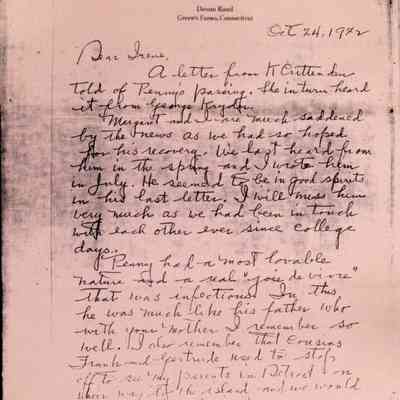 Devon Road
Green's Farms, Connecticut
Oct 24, 1972
Dear Irene,
A letter from K Crittenden
told of Penny's passing. She in turn heard
it from George
Margaret and I are much saddened
by the news as we had so hoped
for his recovery. We last heard from
him in the spring and I wrote him
in July. He seemed to be in good spirits
in his last letter. I will miss him
very much as we had been in touch
with each other ever since college
days.
Penny had a most lovable
nature and a real "joie de vivre"
that was infectious. In this
he was much like his father who
with your mother I remember so
well. I also remember that Cousins
Frank and Gertrude used to stop
off to see my parents in Detroit on
their way to the island and we would